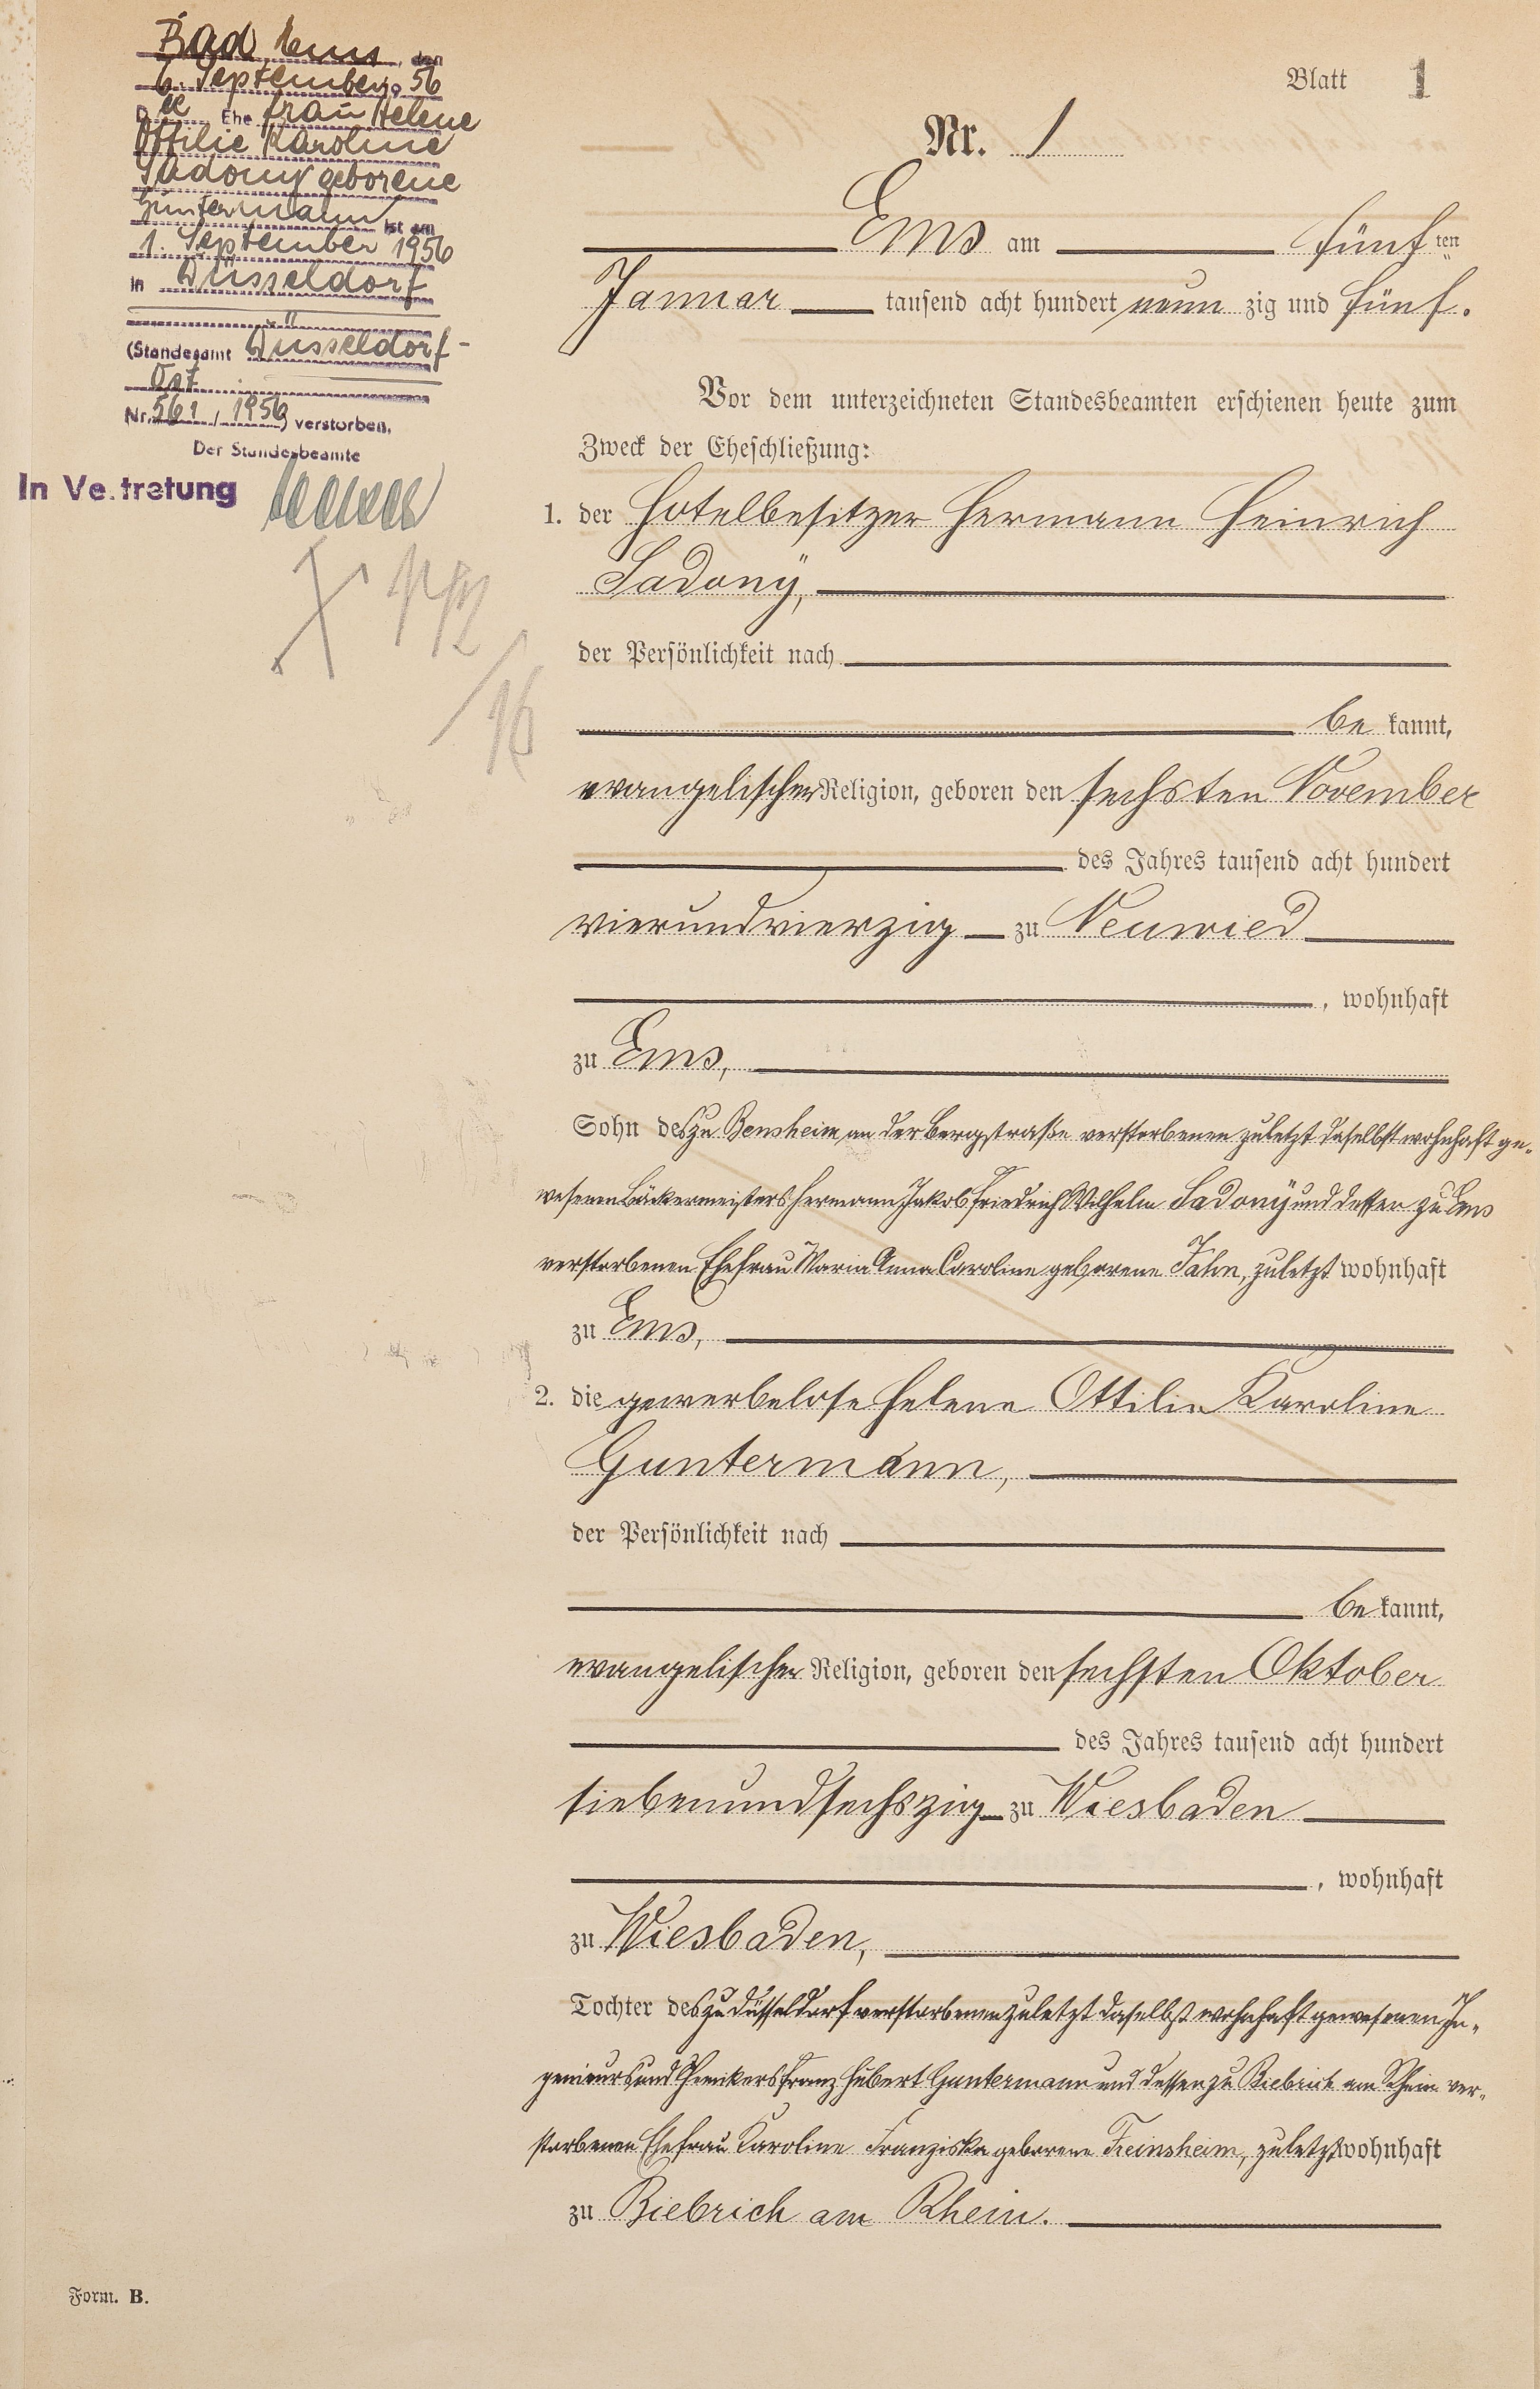 Bad Ems, den
6. September 1956
Die Ehefrau Helene
Ottilie Karoline
Sadony geborene
Guntermann ist am
1. September 1956
in Düsseldorf
(Standesamt Düsseldorf-
Ost
Nr. 561/1956) verstorben.
Der Standesbeamte
In Vertretung
Blatt 1
Nr. 1
Ems am fünften
Januar tausend acht hundert neunzig und fünf.
Vor dem unterzeichneten Standesbeamten erschienen heute zum
Zweck der Eheschließung:
1. der Hotelbesitzer Hermann Heinrich
Sadony,
der Persönlichkeit nach
bekannt,
evangelischer Religion, geboren den sechsten November
des Jahres tausend acht hundert
vierundvierzig zu Neuwied
, wohnhaft
zu Ems,
Sohn des zu Bensheim an der Bergstraße verstorbenen zuletzt daselbst wohnhaft ge-
wesenen Bäckermeisters Hermann Jakob Friedrich Wilhelm Sadony und dessen zu Ems
verstorbenen Ehefrau Maria Anna Caroline geborene Jahn, zuletzt wohnhaft
zu Ems,
2. die gewerbelose Helene Ottilie Karoline
Guntermann,
der Persönlichkeit nach
bekannt,
evangelischer Religion, geboren den sechsten Oktober
des Jahres tausend acht hundert
siebenundsechszig zu Wiesbaden
, wohnhaft
zu Wiesbaden,
Tochter des zu Düsseldorf verstorbenen zuletzt daselbst wohnhaft gewesenen In-
genieurs und Chemikers Franz Hubert Guntermann und dessen zu Biebrich am Rhein ver-
storbenen Ehefrau Karoline Franziska geborene Freinsheim, zuletzt wohnhaft
zu Biebrich am Rhein.
Form. B.